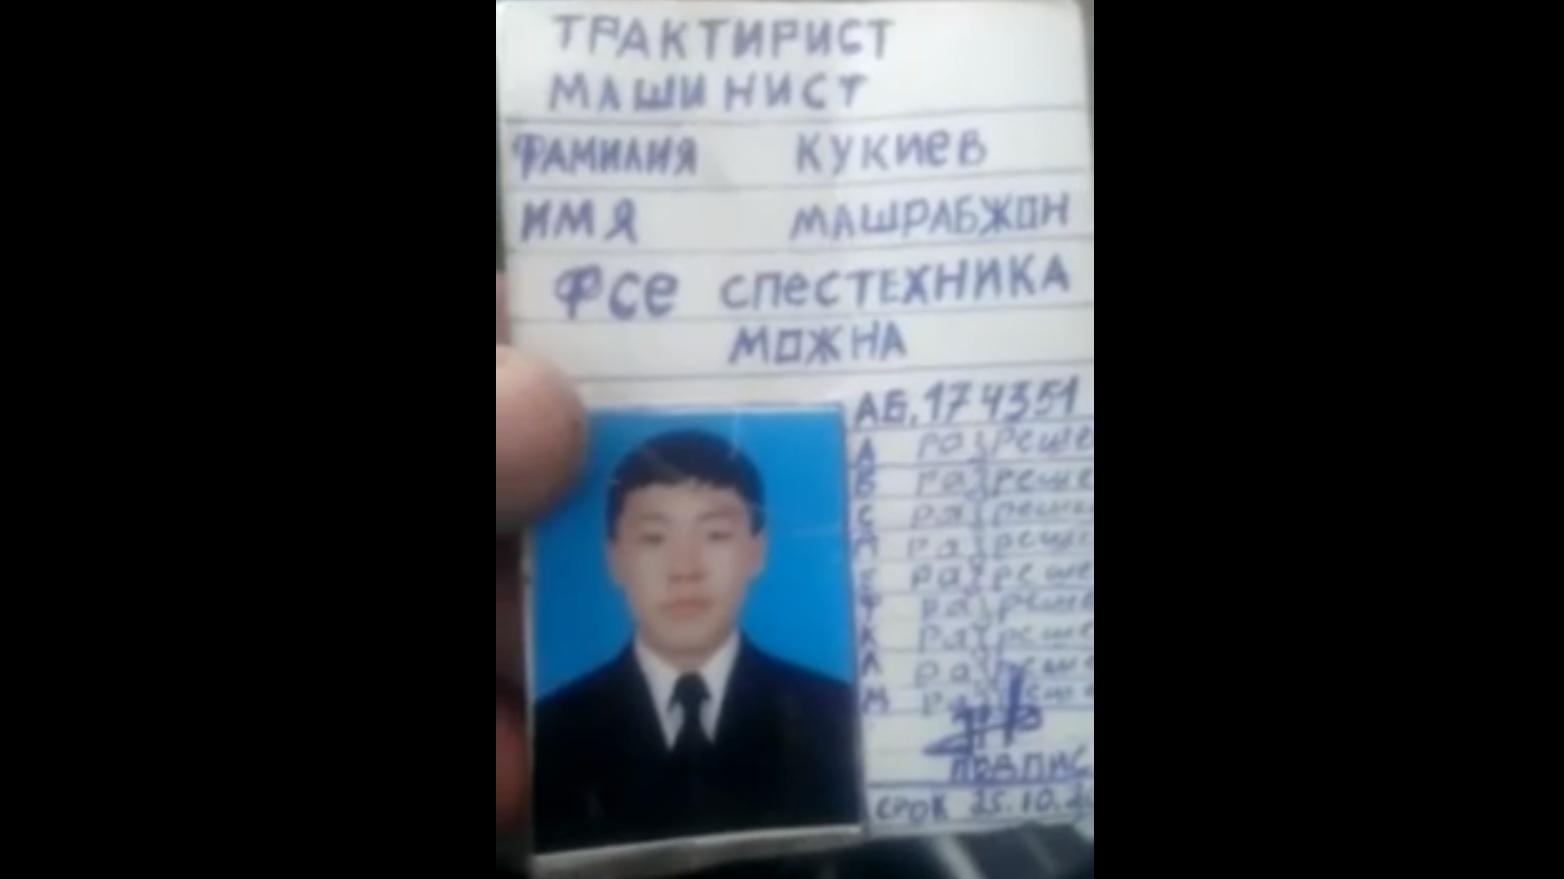 ТРАКТИРИСТ
МАШИНИСТ
ФАМИЛИЯ КУКИеВ
ИМЯ МАШРАБЖОН
Фсе спестехНИКА
МОЖНА
АБ.174351
А разреше
Б разреше
С разреше
Д разреше
Е разреше
Ф разреше
К разреше
Л разреше
М разреше
ПОДПИС
СРОК 25.10.2